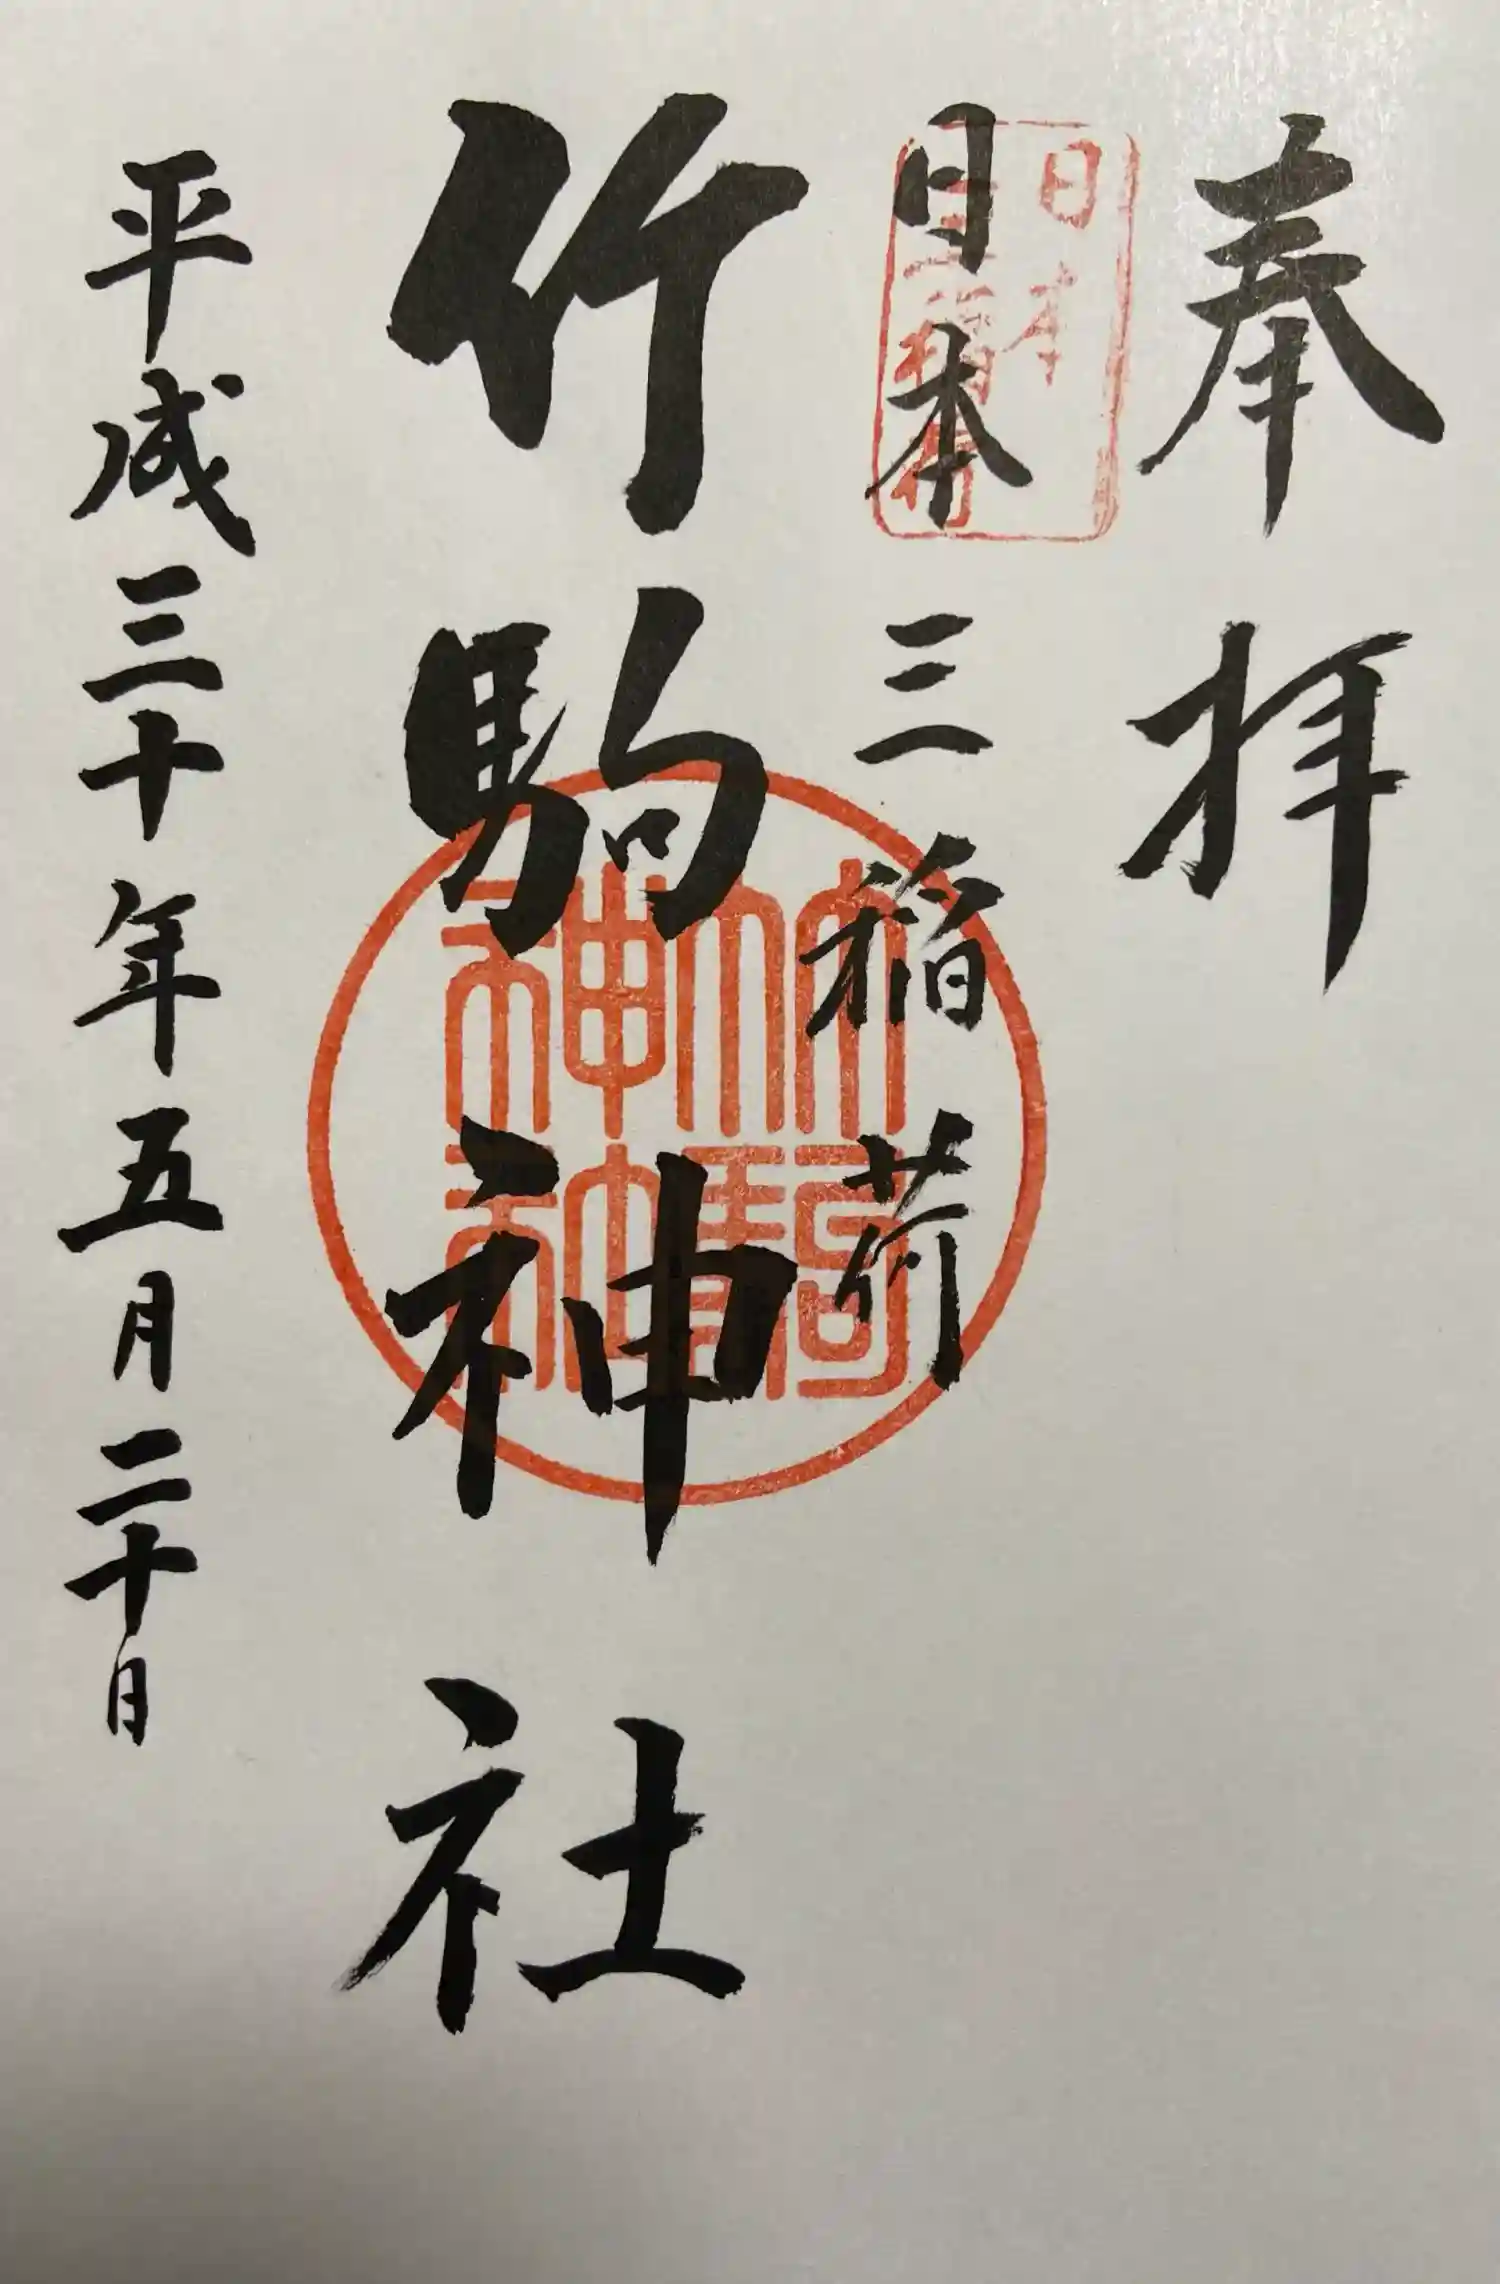 奉拝
日本三稲荷
日本
三稲荷
竹駒神社
竹駒
神社
平成三十年五月二十日